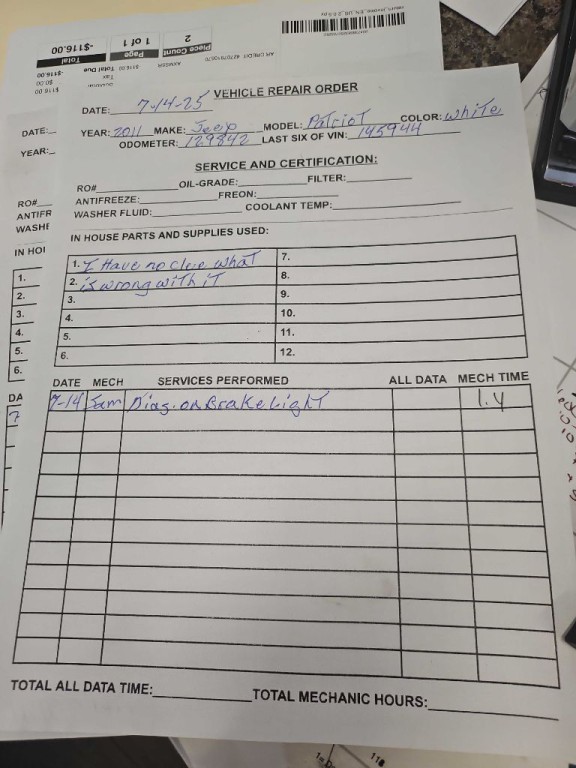 -$116.00
Total
1 of 1
Page
2
Piece Count
Total Due
-$116.00
Tax
$0.00
VEHICLE REPAIR ORDER
DATE: 7-14-25
YEAR: 2011 MAKE: Jeep MODEL: Patriot COLOR: White
ODOMETER: 129842 LAST SIX OF VIN: 145944
SERVICE AND CERTIFICATION:
RO# OIL-GRADE: FILTER:
ANTIFREEZE: FREON:
WASHER FLUID: COOLANT TEMP:
IN HOUSE PARTS AND SUPPLIES USED:
1. I Have no clue what 7.
2. is wrong with it 8.
3. 9.
4. 10.
5. 11.
6. 12.
DATE MECH SERVICES PERFORMED ALL DATA MECH TIME
7-14 Sam Diag. on Brake Light 1.4
TOTAL ALL DATA TIME: TOTAL MECHANIC HOURS:
DATE:
YEAR:
RO#
ANTIFR
WASHE
IN HOI
1.
2.
3.
4.
5.
6.
DA
7
118